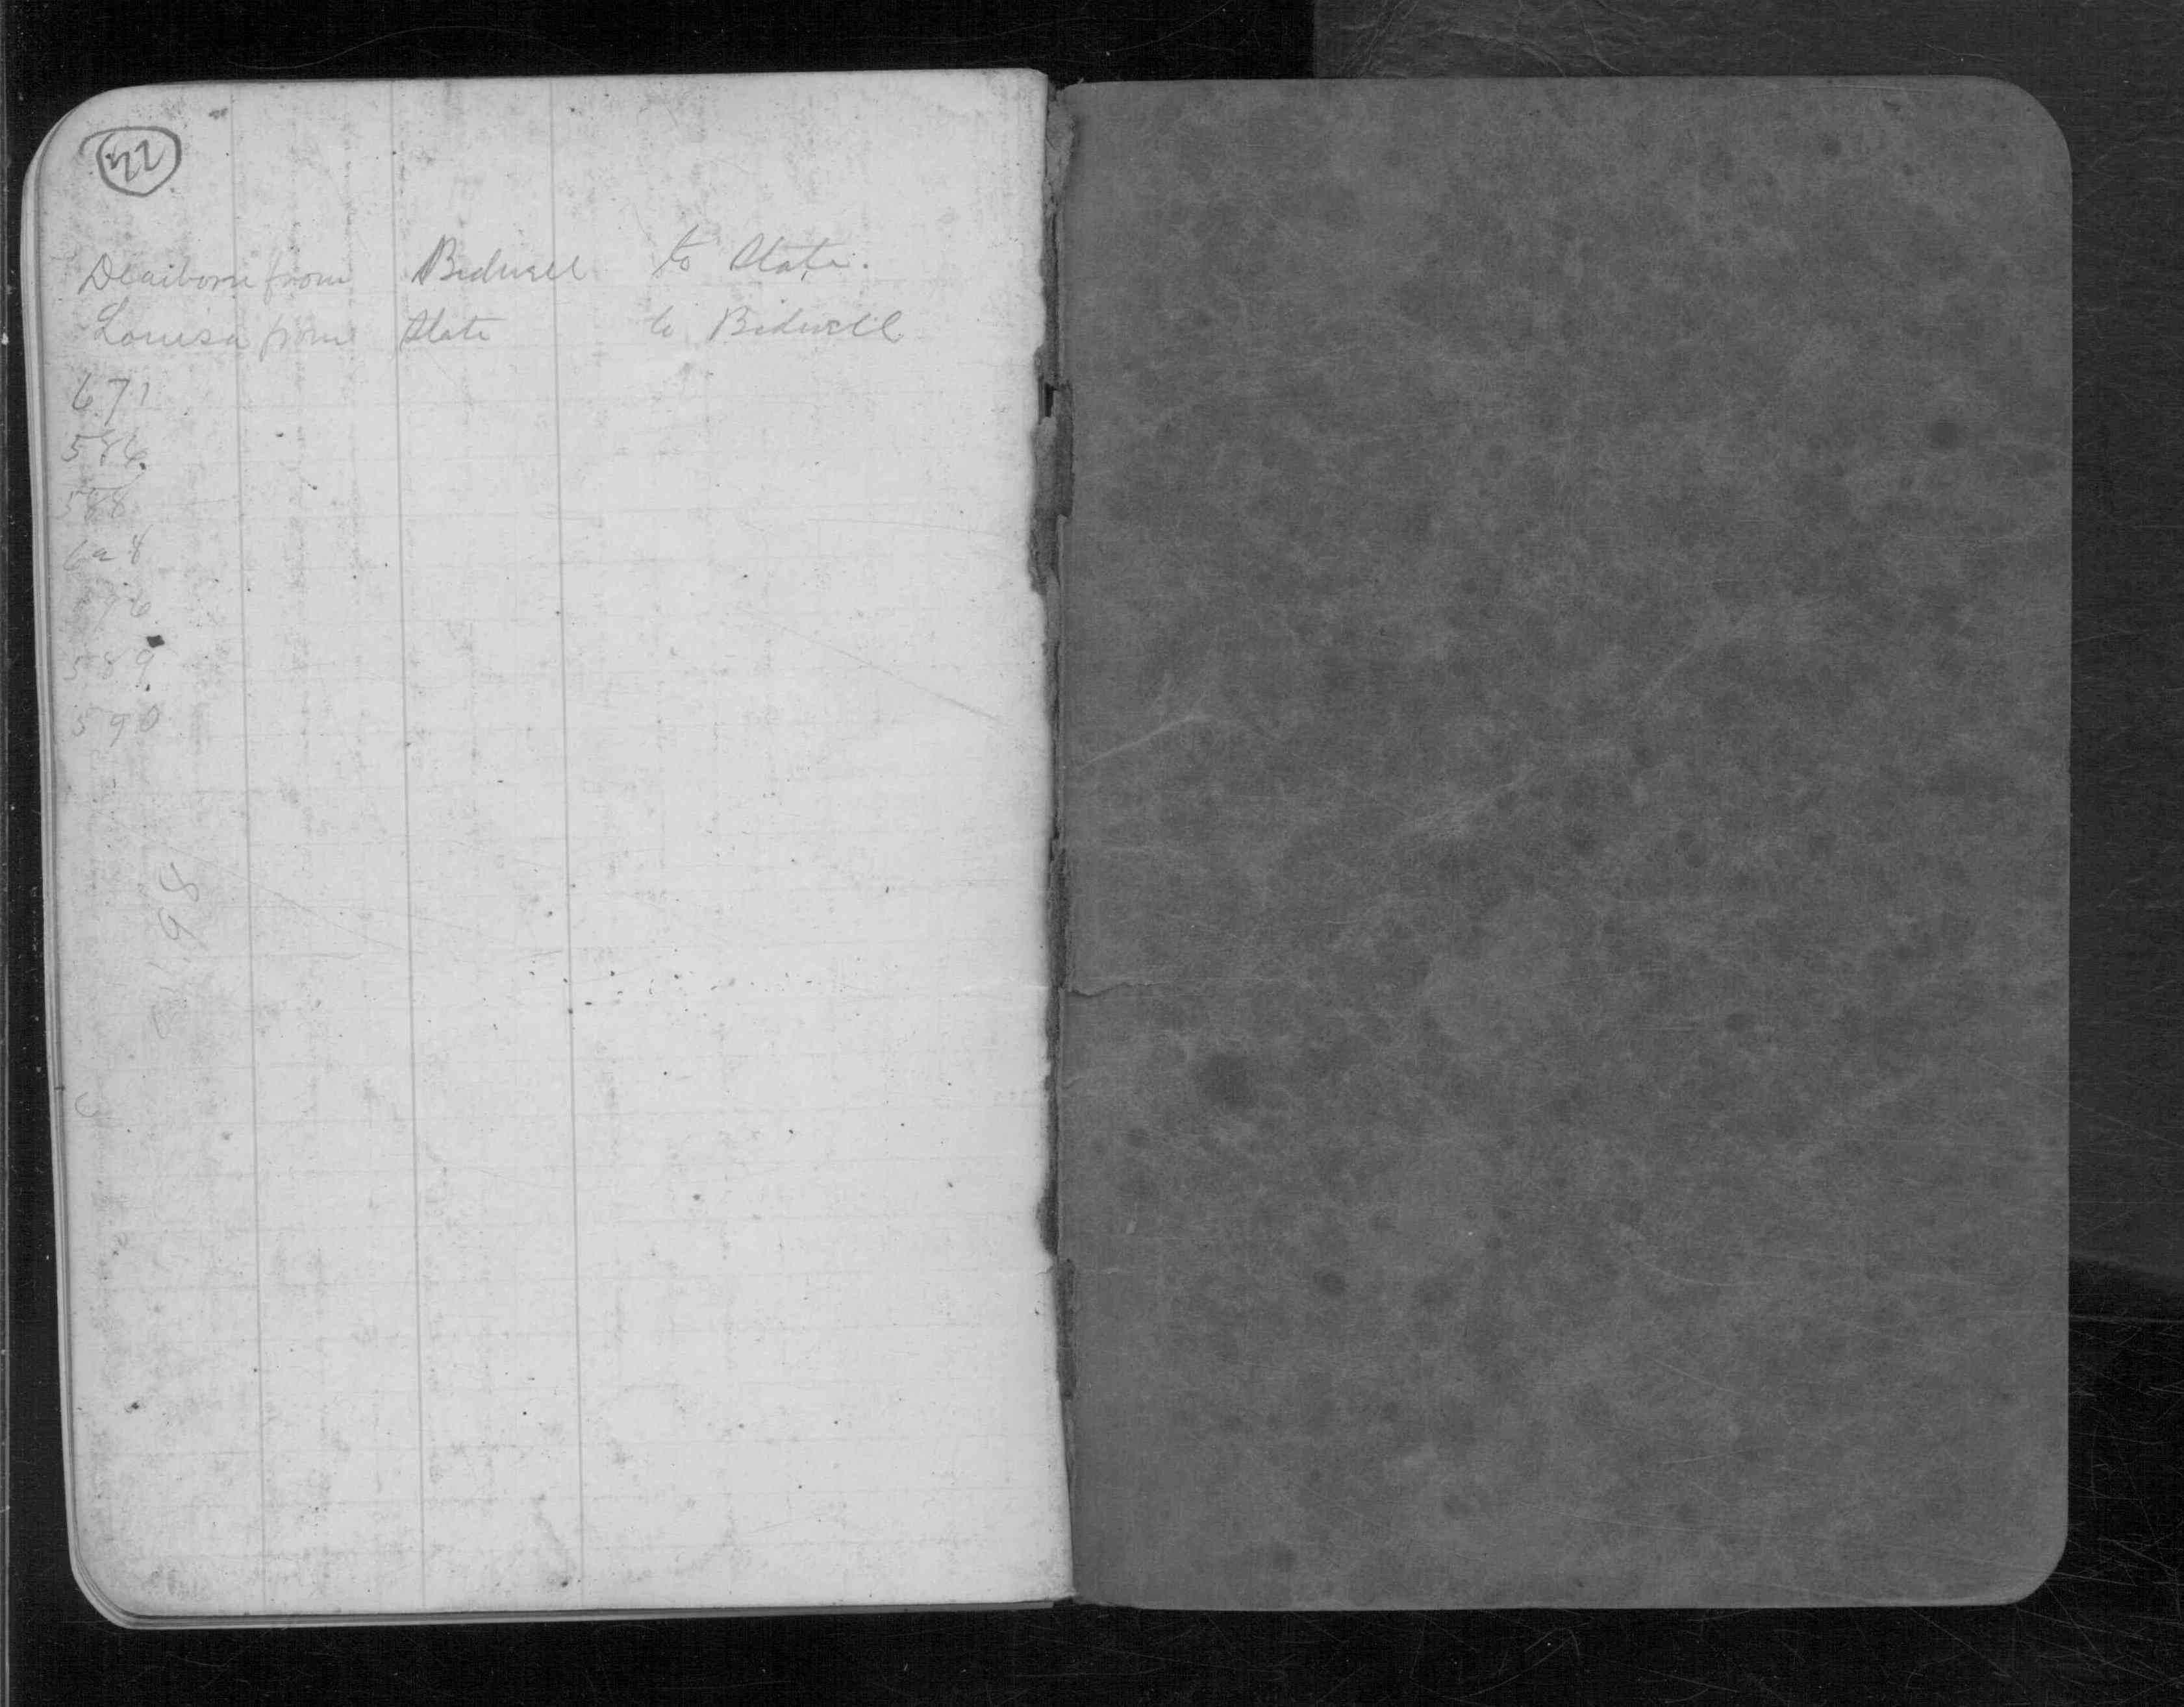 22
Dearborn from Bidwell to State.
Louisa from State to Bidwell
671
586
588
589
590